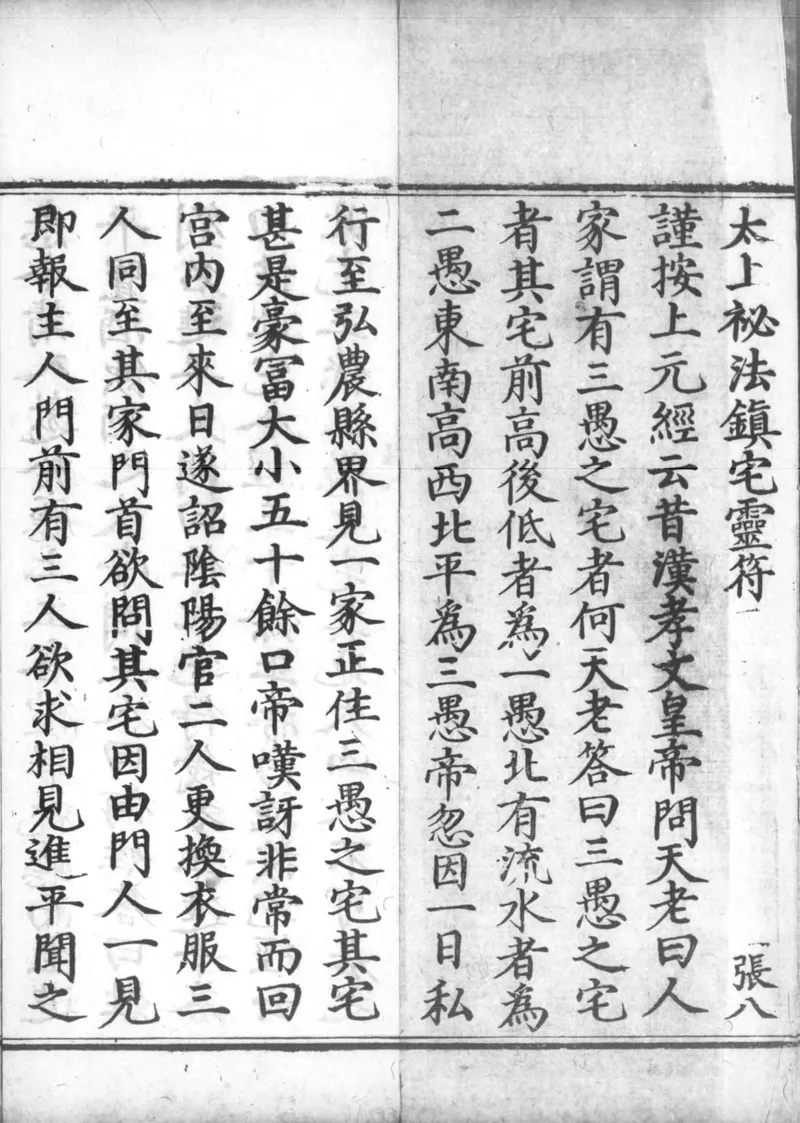 太上祕法鎮宅靈符　張八
謹按上元經云昔漢孝文皇帝問天老曰人
家謂有三愚之宅者何天老答曰三愚之宅
者其宅前高後低者為一愚北有流水者為
二愚東南高西北平為三愚帝忽因一日私
行至弘農縣界見一家正住三愚之宅其宅
甚是豪富大小五十餘口帝嘆訝非常而回
宮內至來日遂詔陰陽官二人更換衣服三
人同至其家門首欲問其宅因由門人一見
即報主人門前有三人欲求相見進平聞之